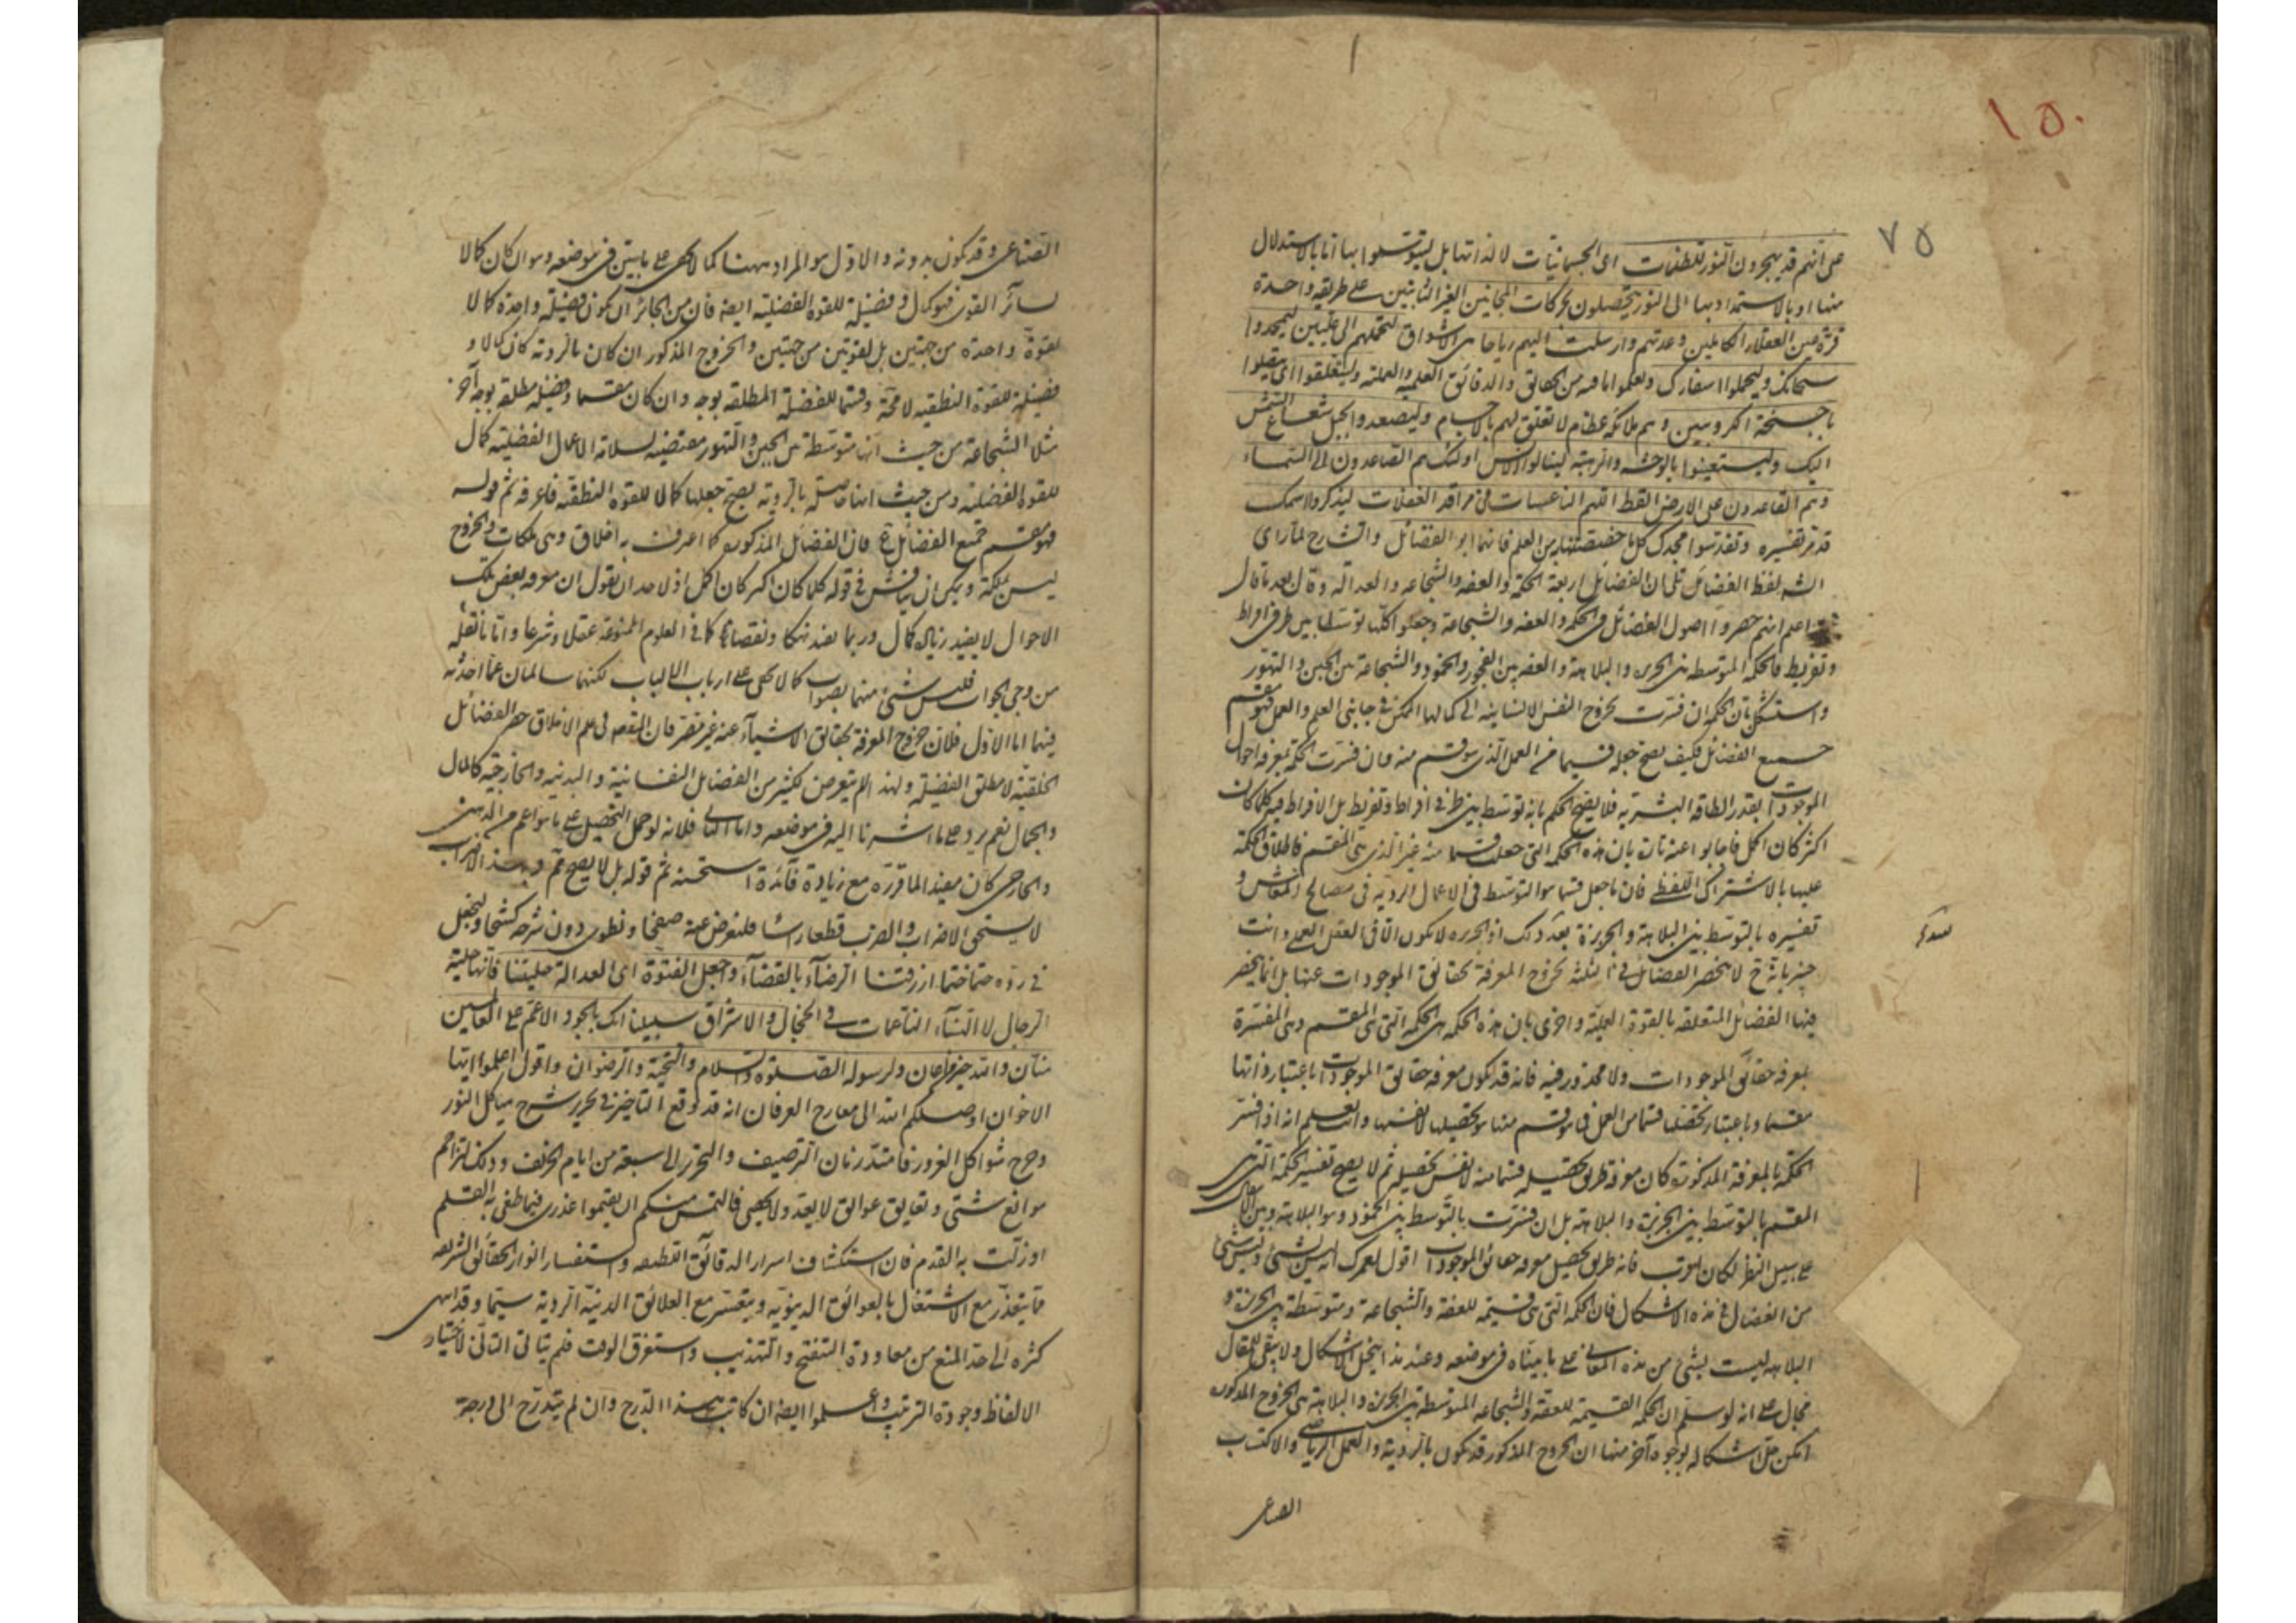 ١٥٠
٧٥
على انهم قد يهجرون النور للظلمات اى الجسمانيات لا لذاتها بل ليتوسلوا بها اما بالاستدلال
منها او بالاستمداد بها الى النور يتحصلون بحركات المجانين الغير الثابتين على طريقة واحدة
قرة عين العقلاء الكاملين وعدتهم وارسلت اليهم رياحا من الاشواق لتحملهم الى عليين ليمجدوا
سبحانك وليحملوا اسفارك وتعلموا ما فيه من الحقائق والدقائق العلمية والعملية وليتعلقوا اى
باجنحة الكروبيين وهم ملائكة عظام لا تعلق لهم بالاجسام وليصعدوا بحبل شعاع الشمس
اليك وليستعينوا بالوحشة والرهبة لينالوا الانس اولئك هم الصاعدون الى السماء
وهم القاعدون على الارض ايقظ اللهم الناعسات فى مراقد الغفلات ليذكروا اسمك
قد مر تفسيره وتقدسوا مجدك كل حصتنا من العلم فانهما ابو الفضائل والشارح لما راى
لفظ الفضائل الفضائل اربعة الحكمة والعفة والشجاعة والعدالة وقال بعد ما قال
اعلم انهم حصروا اصول الفضائل فى الحكمة والعفة والشجاعة وجعلوا كلها توسطا بين طرفى افراط
وتفريط فالحكمة المتوسطة بين الجربزة والبلاهة والعفة بين الفجور والخمود والشجاعة بين الجبن والتهور
واستشكل بان الحكمة ان فسرت بخروج النفس الانسانية الى كمالها الممكن فى جانبى العلم والعمل فهو مقسم
جميع الفضائل فكيف يصح جعله قسيما من العمل الذى هو قسم منه وان فسرت الحكمة بمعرفة احوال
الموجودات بقدر الطاقة البشرية فلا يصح الحكم بانه توسط بين طرفى افراط وتفريط بل الافراط فيه كلما كان
اكثر كان اكمل فاجابوا عنه تارة بان هذه الحكمة التى جعلت قسما منه غير الذى هى المقسم فاطلاق الحكمة
عليها بالاشتراك اللفظى فان ما جعل قسما هو التوسط فى الاعمال الردية فى مصالح المعاش و
تفسيره بالتوسط بين البلاهة والجربزة بعد ذلك اذ الجربزة لا يكون الا فى العقل العملى وانت
خبير بانه ح لا ينحصر الفضائل فى الثلثة لخروج المعرفة بحقائق الموجودات عنها بل انما ينحصر
فيها الفضائل المتعلقة بالقوة العملية واخرى بان هذه الحكمة هى الحكمة التى هى المقسم وهى المفسرة
بمعرفة حقائق الموجودات ولا محذور فيه فانه قد يكون معرفة حقائق الموجودات باعتبار ذاتها
مقسما وباعتبار تحصيلها قسما من العمل فى هو قسم منها هو تحصيلها لا نفسها وانت تعلم انه اذا فسر
الحكمة بالمعرفة المذكورة كان معرفة طريق تحصيله قسما منه لا نفس تحصيله ثم لا يصح تفسير الحكمة التى هى
المقسم بالتوسط بين الجربزة والبلاهة بل ان فسرت بالتوسط بين الخمود وهو البلاهة وبين
على سبيل النظر لكان اصوب فانه طريق تحصيل معرفة حقائق الموجودات اقول لعمرك انه ليس بشئ وليس شئ
من الفضائل فى هذه الاشكال فان الحكمة التى هى قسيمة للعفة والشجاعة ومتوسطة بين الجربزة و
البلاهة ليست بشئ من هذه المعانى على ما بيناه فى موضعه وعند هذا ينحل الاشكال ولا يبقى للمقال
مجال على انه لو سلم ان الحكمة القسيمة للعفة والشجاعة المتوسطة بين الجربزة والبلاهة هى الخروج المذكور
امكن حل اشكاله بوجوه آخر منها ان الخروج المذكور قد يكون بالروية والعمل الرياضى والاكتساب
الصناعى
الصناعى وقد يكون بدونه والاول هو المراد ههنا كما لا يخفى على ما بين فى موضعه وهو ان كان كمالا
لسائر القوى فهو كمال وفضيلة للقوة الفضلية ايضا فان من الجائز ان يكون فضيلة واحدة كمالا
لقوة واحدة من جهتين بل لقوتين من جهتين والخروج المذكور ان كان بالروية كان كمالا و
فضيلة للقوة النطقية لا محة وقسما للفضيلة المطلقة بوجه وان كان مقسما وفضيلة مطلقة بوجه آخر
مثلا الشجاعة من حيث انها متوسطة بين الجبن والتهور مقتضية لسلامة الاعمال الفضلية كمال
للقوة الفضلية ومن حيث انها حاصلة بالروية يصح جعلها كمالا للقوة النطقية فاعرفه ثم قوله
فهو مقسم جميع الفضائل فان الفضائل المذكورة كما اعرف به اخلاق وهى ملكات والخروج
ليس بملكة ويمكن ان يناقش فى قوله كلما كان اكثر كان اكمل اذ لاحد ان يقول ان معرفة بعض تلك
الاحوال لا يفيد زيادة كمال وربما يفيد نقصانا كما فى العلوم الممنوعة عقلا وشرعا واما ما نقله
من وجهى الجواب فليس شئ منهما بصواب كما لا يخفى على ارباب الالباب لكنهما سالمان عما اخذته
فيهما اما الاول فلان خروج المعرفة بحقائق الاشياء عنه غير مضر فان المقصد فى علم الاخلاق حصر الفضائل
الخلقية لا مطلق الفضيلة ولهذا لم يتعرض لكثير من الفضائل النفسانية والبدنية والخارجية كالمال
والجمال نعم يرد على ما اشرنا اليه فى موضعه واما الثانى فلانه لو حمل التحصيل على ما هو اعم من الذهنى
والخارجى كان مفيدا لما قرره مع زيادة فائدة استحسنه ثم قوله بل لا يصح ثم وبهذا الاضراب
لا يستحق الاضراب والضرب قطعا راسا فلنعرض عنه صفحا ونطوى دون شرحه كشحا ولنجعل
فى رده ختما ارزقنا الرضاء بالقضاء واجعل الفتوة اى العدالة حليتنا فانها حلية
الرجال لا النساء الناعمات فى الحجال والاشراق سبيلنا انك بالجود الاعم على العالمين
منان والله خير مستعان ولرسوله الصلوة والسلام والتحية والرضوان واقول اعلموا ايها
الاخوان اوصلكم الله الى معارج العرفان انه قد وقع التاخير فى تحرير شرح هياكل النور
وجرح شواكل الغرور فامتد زمان الترصيف والتحرير الى سبعة من ايام الخريف وذلك لتزاحم
موانع شتى وتعايق عوائق لا يعد ولا يحصى فالتمس منكم ان يقيموا عذرى فيما طغى به القلم
او زلت به القدم فان استكشاف اسرار الدقائق القطبية واستفسار انوار الحقائق الشريفة
مما يتعذر مع الاشتغال بالعوائق الدنيوية ويتعسر مع العلائق الدنية الردية سيما وقد انتهى
كثره الى حد المنع من معاودة التنقيح والتهذيب واستغرق الوقت فلم يتأتى التانى لاختيار
الالفاظ وجودة الترتيب واعلموا ايضا ان كاتب هذا الدرح وان لم يتدرج الى درجة